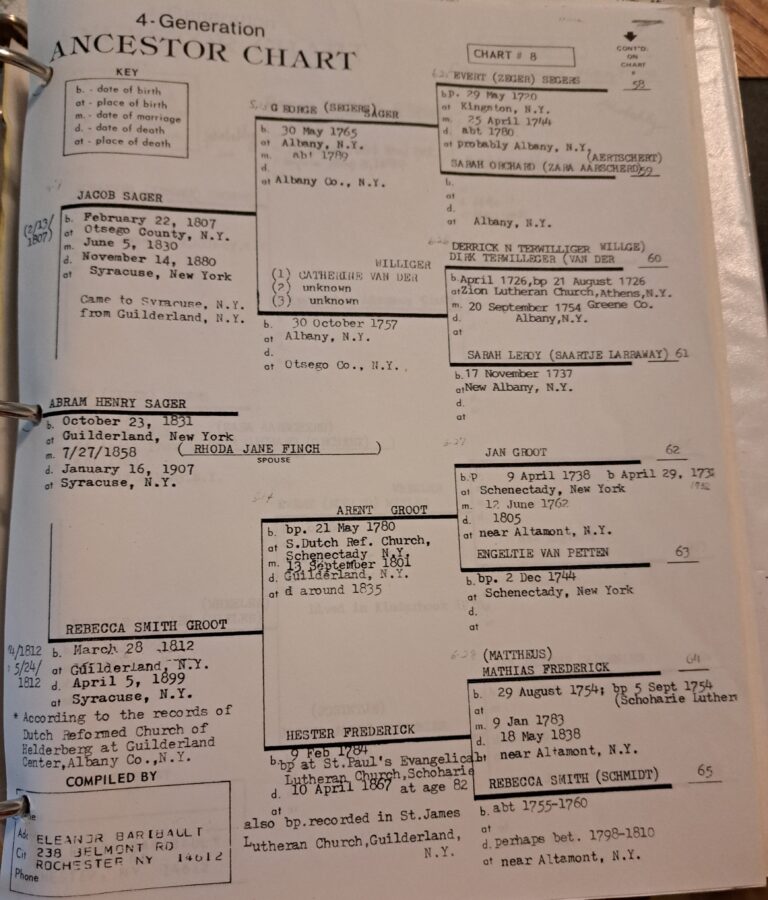 4-Generation
ANCESTOR CHART
KEY
b. - date of birth
at - place of birth
m. - date of marriage
d. - date of death
at - place of death
CHART # 8
CONT'D.
ON
CHART
#
EVERT (ZEGER) SEGERS
58
bp. 29 May 1720
at Kingston, N.Y.
m. 25 April 1744
d. abt 1780
at probably Albany, N.Y.
(AERTSCHERT)
SARAH ORCHARD (ZARA AARSCHERD)
59
b.
at
d.
at Albany, N.Y.
GEORGE (SEGERS) SAGER
b. 30 May 1765
at Albany, N.Y.
m. abt 1789
d.
at Albany Co., N.Y.
WILLIGER
(1) CATHERINE VAN DER
(2) unknown
(3) unknown
b. 30 October 1757
at Albany, N.Y.
d.
at Otsego Co., N.Y.
JACOB SAGER
(2/13/
1807)
b. February 22, 1807
at Otsego County, N.Y.
m. June 5, 1830
d. November 14, 1880
at Syracuse, New York
Came to Syracuse, N.Y.
from Guilderland, N.Y.
DERRICK N TERWILLIGER WILLGE)
DIRK TERWILLEGER (VAN DER
60
b. April 1726, bp 21 August 1726
at Zion Lutheran Church, Athens, N.Y.
m. 20 September 1754 Greene Co.
d. Albany, N.Y.
at
SARAH LEROY (SAARTJE LARRAWAY) 61
b. 17 November 1737
at New Albany, N.Y.
d.
at
ABRAM HENRY SAGER
b. October 23, 1831
at Guilderland, New York
m. 7/27/1858 ( RHODA JANE FINCH )
SPOUSE
d. January 16, 1907
at Syracuse, N.Y.
JAN GROOT
62
b.p 9 April 1738 b April 29,
at Schenectady, New York
m. 12 June 1762
d. 1805
at near Altamont, N.Y.
ENGELTIE VAN PETTEN
63
b. bp. 2 Dec 1744
at Schenectady, New York
d.
at
ARENT GROOT
b. bp. 21 May 1780
at S.Dutch Ref. Church,
Schenectady N.Y.
m. 13 September 1801
d. Guilderland, N.Y.
at d around 1835
REBECCA SMITH GROOT
b. March 28 1812
at Guilderland, N.Y.
d. April 5, 1899
at Syracuse, N.Y.
5/24/
1812
* According to the records of
Dutch Reformed Church of
Helderberg at Guilderland
Center, Albany Co., N.Y.
(MATTHEUS)
MATHIAS FREDERICK
64
b. 29 August 1754; bp 5 Sept 1754
(Schoharie Luther
at
m. 9 Jan 1783
d. 18 May 1838
at near Altamont, N.Y.
REBECCA SMITH (SCHMIDT)
65
b. abt 1755-1760
at
d. perhaps bet. 1798-1810
at near Altamont, N.Y.
HESTER FREDERICK
9 Feb 1784
b. bp at St.Paul's Evangelical
Lutheran Church, Schoharie
d. 10 April 1867 at age 82
at
also bp.recorded in St.James
Lutheran Church, Guilderland,
N.Y.
COMPILED BY
ELEANOR BARIBAULT
238 BELMONT RD
ROCHESTER NY 14612
Phone